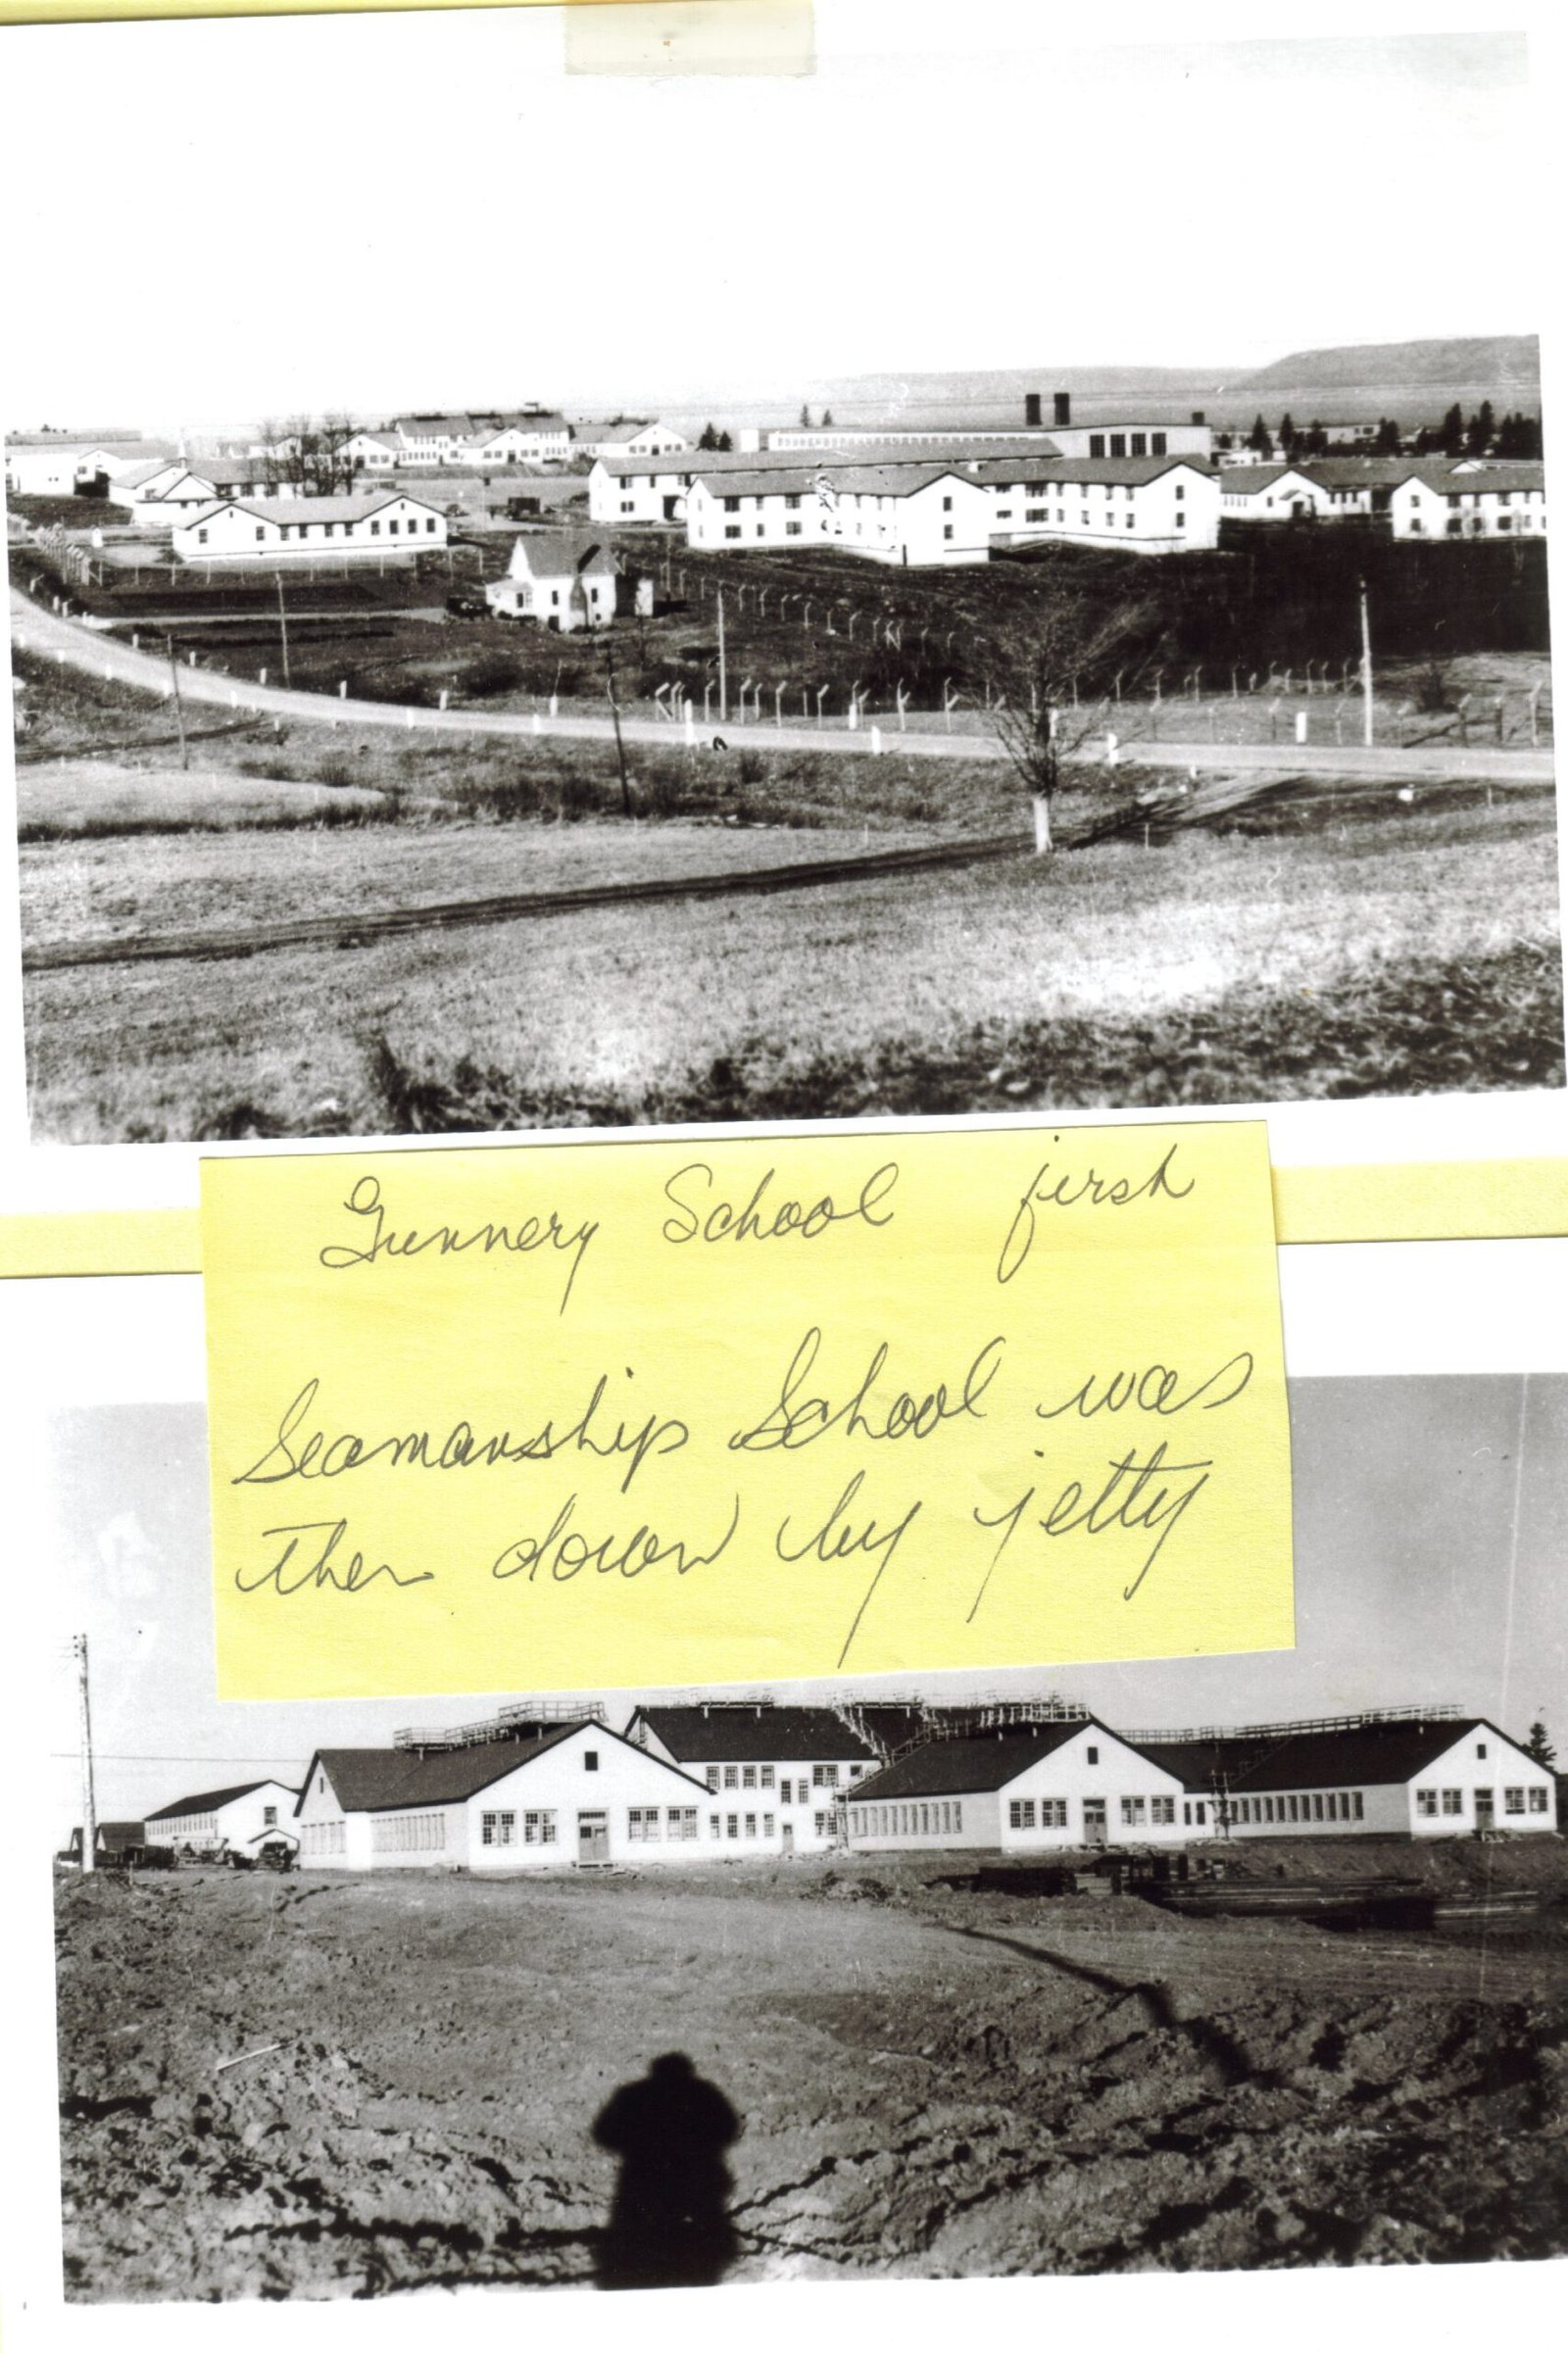 Gunnery School first
Seamanship School was
then down by jetty